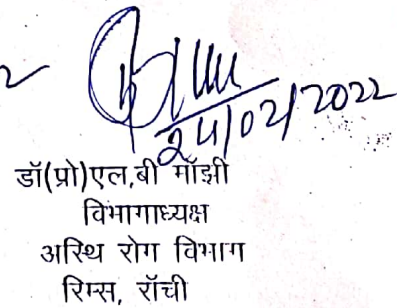 24/02/2022
डॉ(प्रो)एल,बी माँझी
विभागाध्यक्ष
अस्थि रोग विभाग
रिम्स, राँची